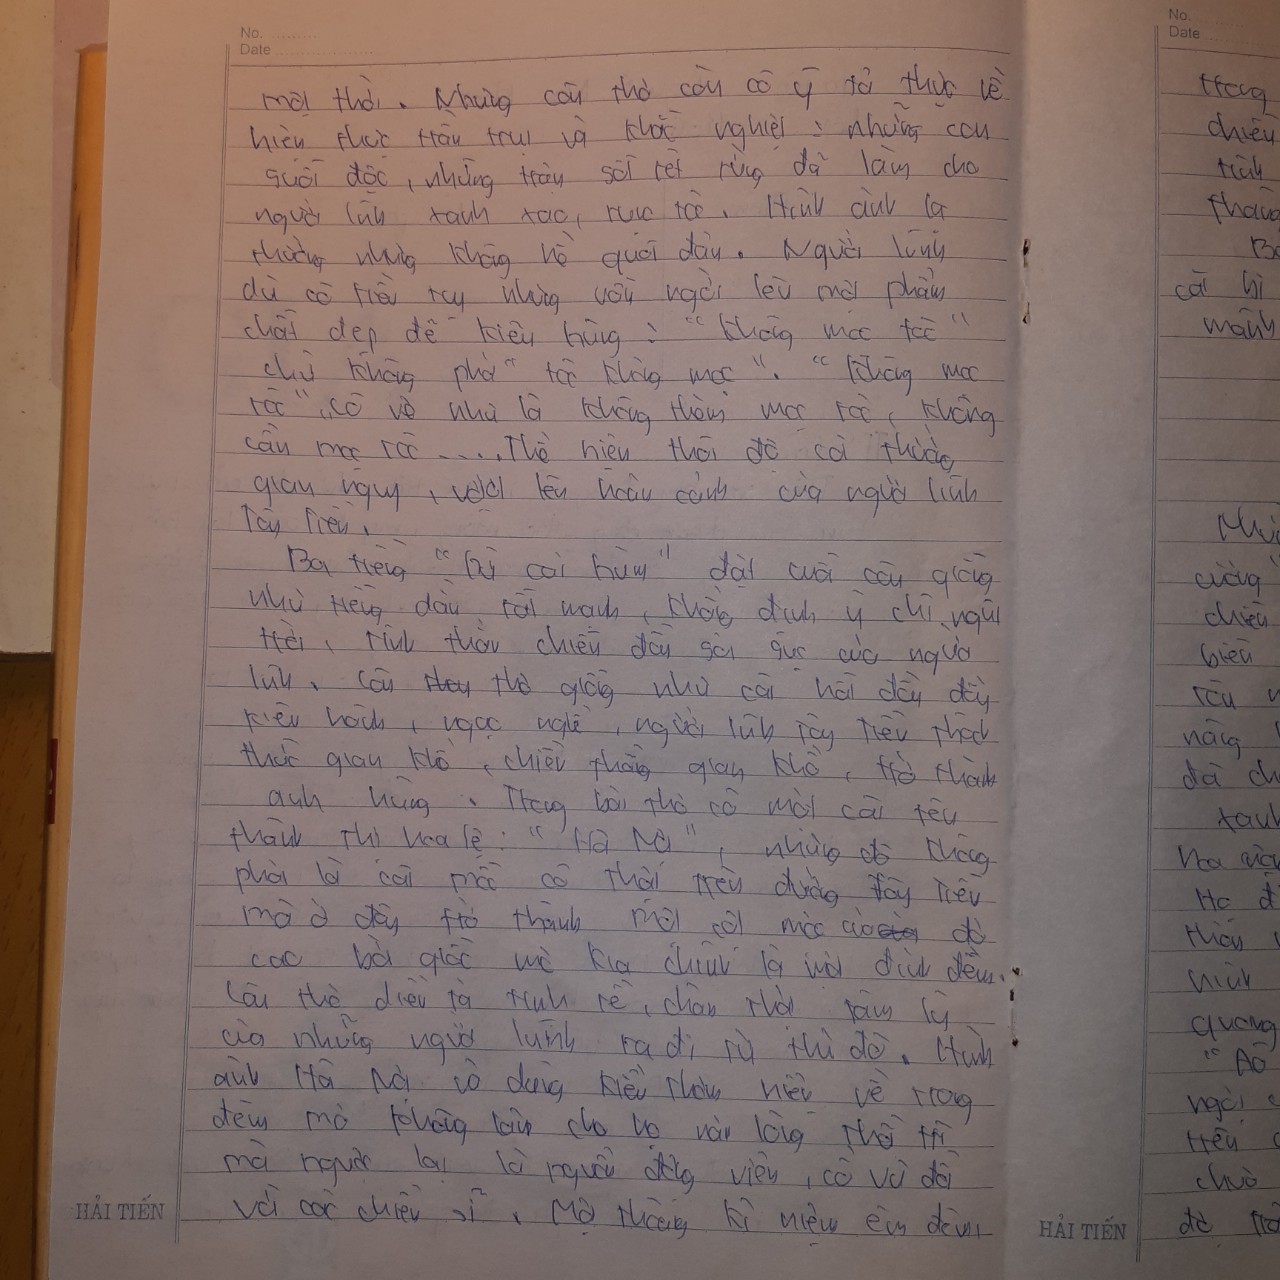 No.
Date
một thời. Những câu thơ còn có ý tả thực về
hiện thực trần trụi và khắc nghiệt: những con
suối độc, những trận sốt rét rừng đã làm cho
người lính xanh xao, rụng tóc. Hình ảnh lạ
thường nhưng không hề quái đản. Người lính
dù có tiều tụy nhưng vẫn ngời lên một phẩm
chất đẹp đẽ kiêu hùng: "không mọc tóc"
chứ không phải "tóc không mọc". "Không mọc
tóc", có vẻ như là không thèm mọc tóc, không
cần mọc tóc .... Thể hiện thái độ coi thường
gian nguy, vượt lên hoàn cảnh của người lính
Tây Tiến.
Ba tiếng "dữ oai hùm" đặt cuối câu giống
như tiếng dằn rất mạnh, khẳng định ý chí ngút
trời, tinh thần chiến đấu sôi sục của người
lính. Câu thơ giống như cái hất đầy
kiêu hãnh, ngạo nghễ, người lính Tây Tiến thách
thức gian khổ, chiến thắng gian khổ, trở thành
anh hùng. Trong bài thơ có một cái tên
thành thị hoa lệ: "Hà Nội", nhưng đó không
phải là cái mốc có thật trên đường Tây Tiến
mà ở đây trở thành một cột mốc của
cao bởi giấc mơ kia chính là về đích đến.
Câu thơ diễn tả tinh tế, chân thật tâm lý
của những người lính ra đi từ thủ đô. Hình
ảnh Hà Nội và dáng kiều thơm hiện về trong
đêm mơ không làm cho họ nản lòng thối chí
mà ngược lại là nguồn động viên, cổ vũ đối
với các chiến sĩ. Một thoáng kỉ niệm êm đềm,
HẢI TIẾN
No.
Date
trong
chiến
tinh
cái hi
mãnh
cường
chiến
biên
nâng
thấy
hình
quang
"Áo
ngời
HẢI TIẾN